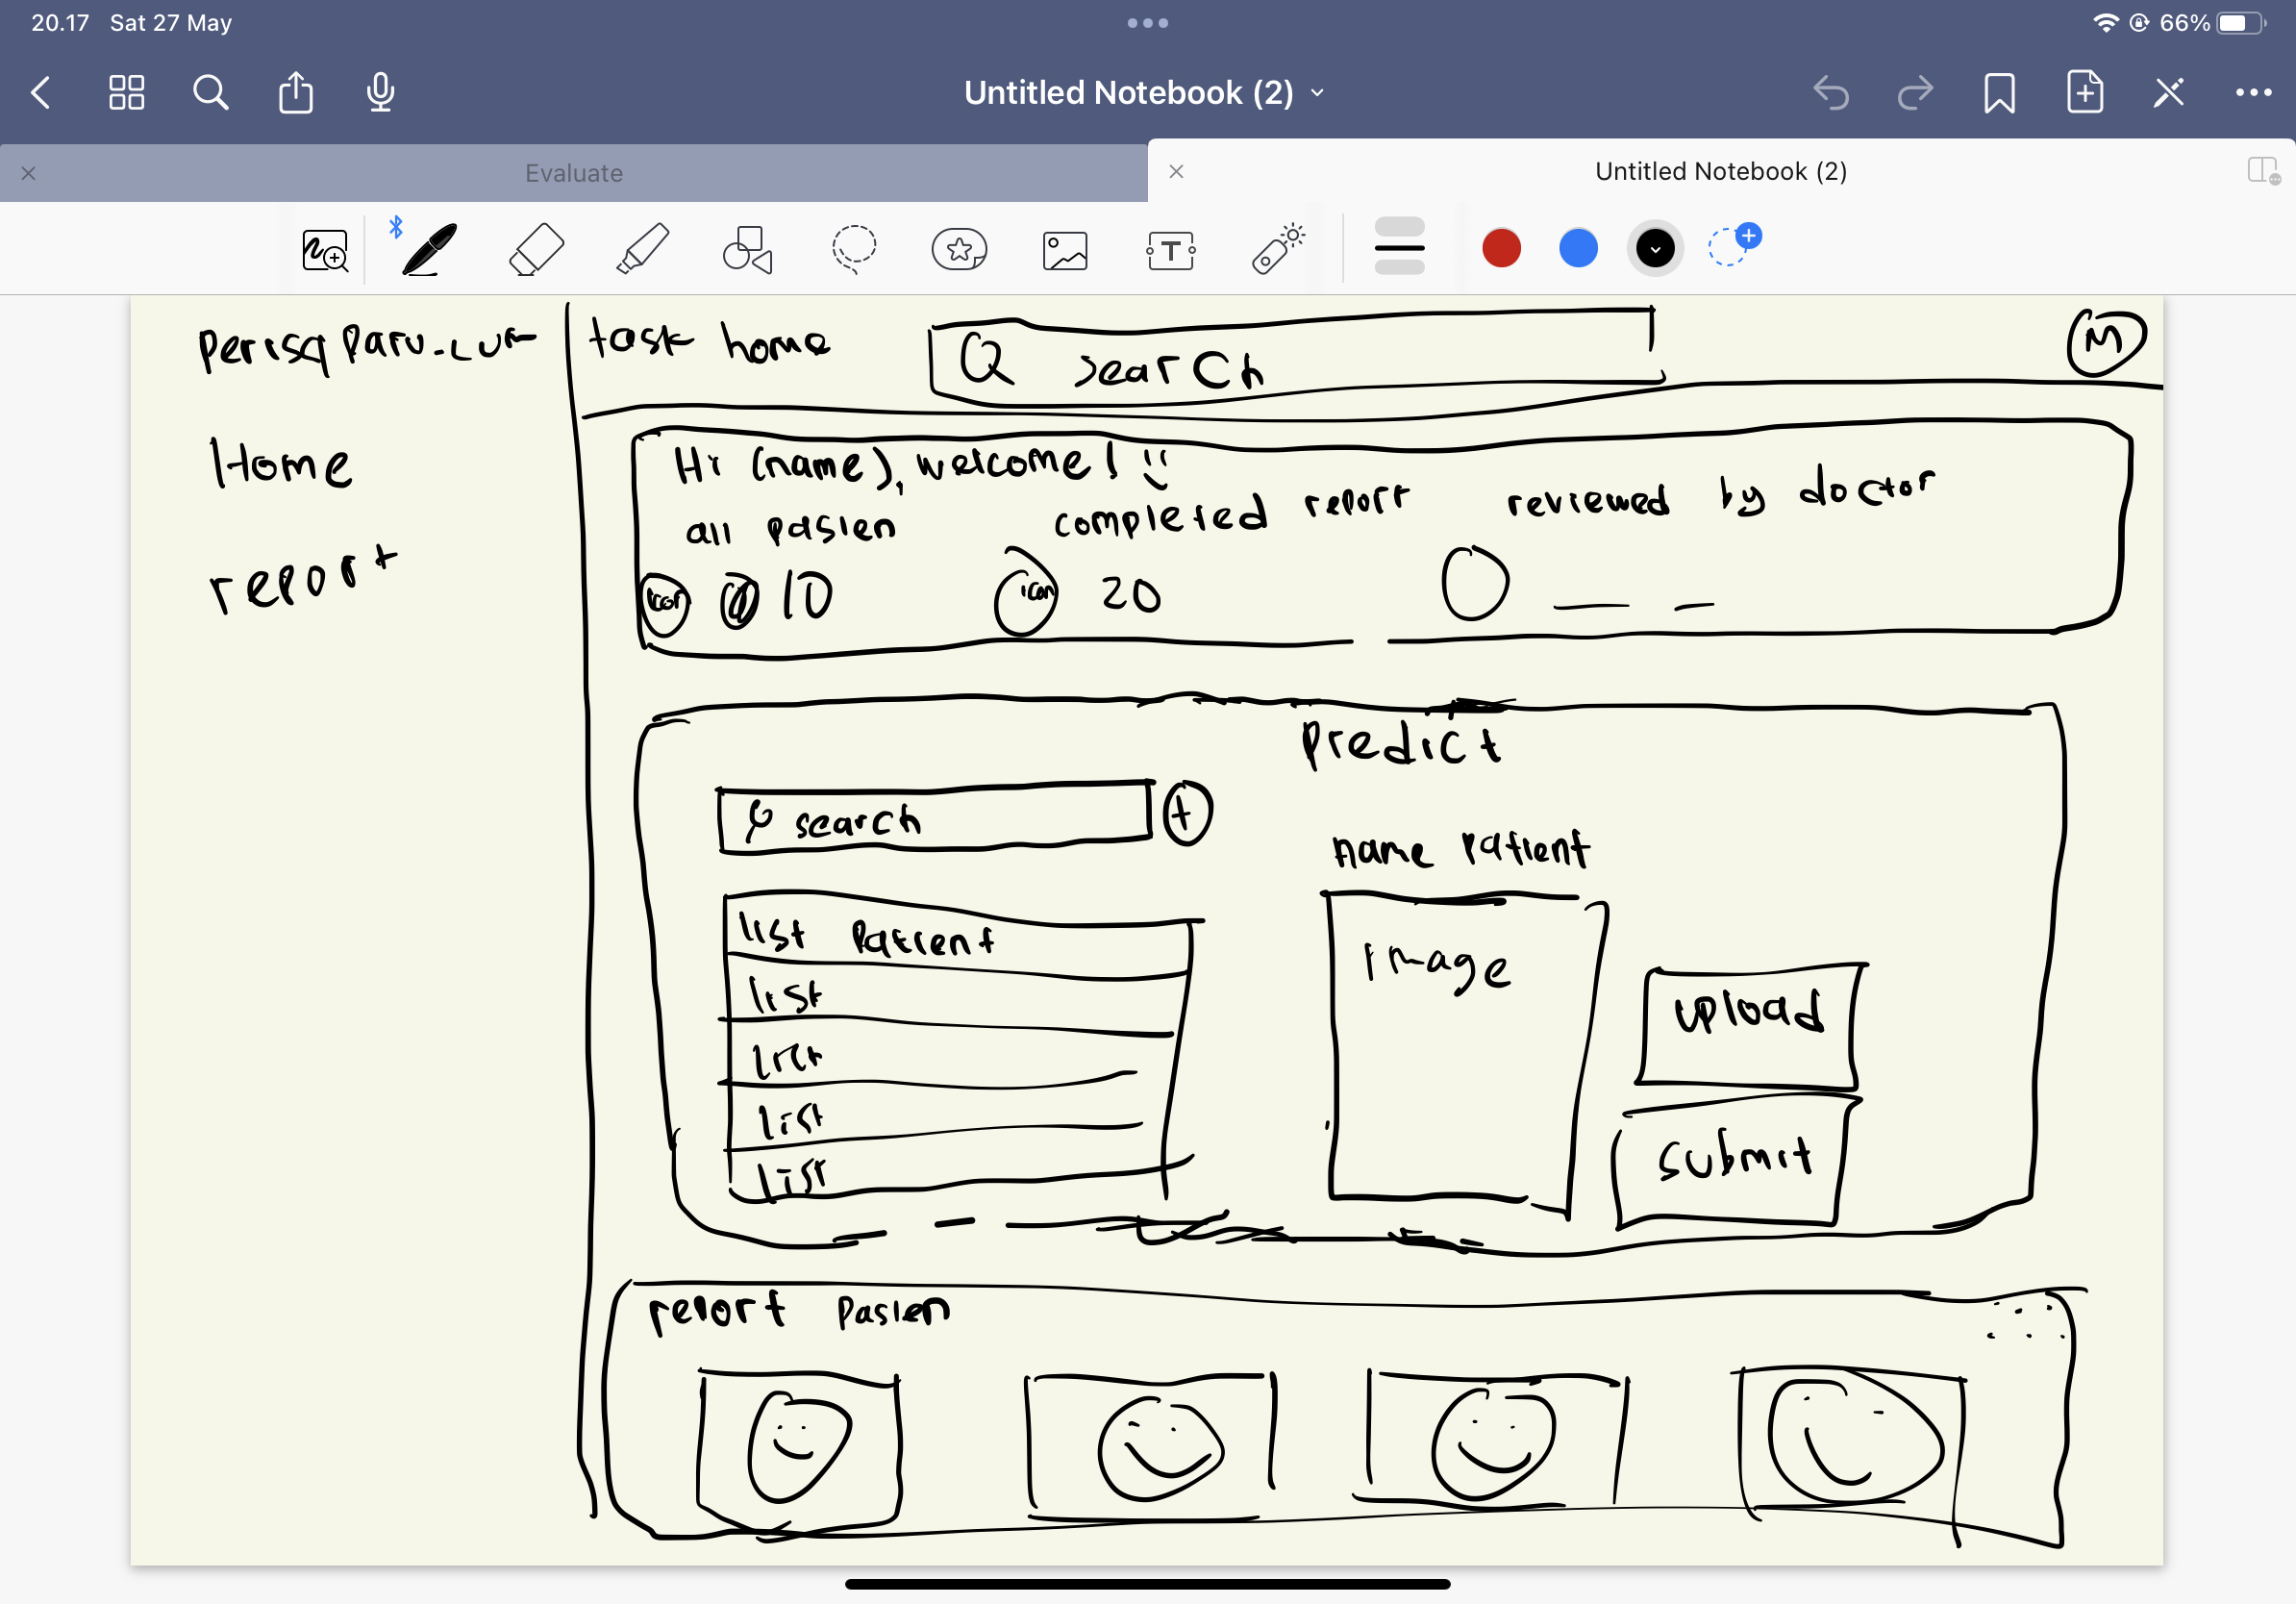 20.17 Sat 27 May
66%
Untitled Notebook (2)
Evaluate
Untitled Notebook (2)
T
perisaparu.com
task home
search
M
Home
report
Hi (name), welcome!
all pasien
completed report
reviewed by doctor
icon
10
icon
20
predict
search
+
name patient
list patient
list
list
list
list
image
upload
submit
report pasien